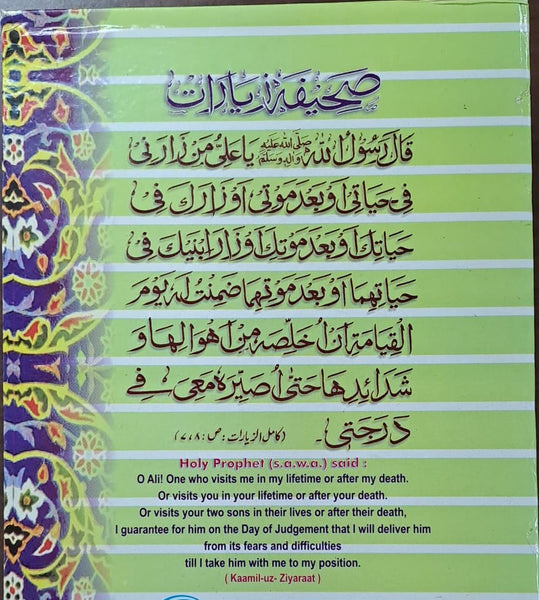 صحیفۂ زیارات
قَالَ رَسُوْلُ اللّٰهِ صَلَّی اللّٰهُ عَلَیْهِ وَاٰلِهٖ وَسَلَّمَ یَا عَلِیُّ مَنْ زَارَنِیْ
فِیْ حَیَاتِیْ اَوْ بَعْدَ مَوْتِیْ اَوْ زَارَكَ فِیْ
حَیَاتِكَ اَوْ بَعْدَ مَوْتِكَ اَوْ زَارَ ابْنَیْكَ فِیْ
حَیَاتِهِمَا اَوْ بَعْدَ مَوْتِهِمَا ضَمِنْتُ لَهٗ یَوْمَ
الْقِیَامَةِ اَنْ اُخَلِّصَهٗ مِنْ اَهْوَالِهَا وَ
شَدَائِدِهَا حَتّٰی اُصَیِّرَهٗ مَعِیَ فِیْ
دَرَجَتِیْ۔ (کامل الزیارات: ص: ۷،۸)
Holy Prophet (s.a.w.a.) said :
O Ali! One who visits me in my lifetime or after my death.
Or visits you in your lifetime or after your death.
Or visits your two sons in their lives or after their death,
I guarantee for him on the Day of Judgement that I will deliver him
from its fears and difficulties
till I take him with me to my position.
( Kaamil-uz- Ziyaraat )